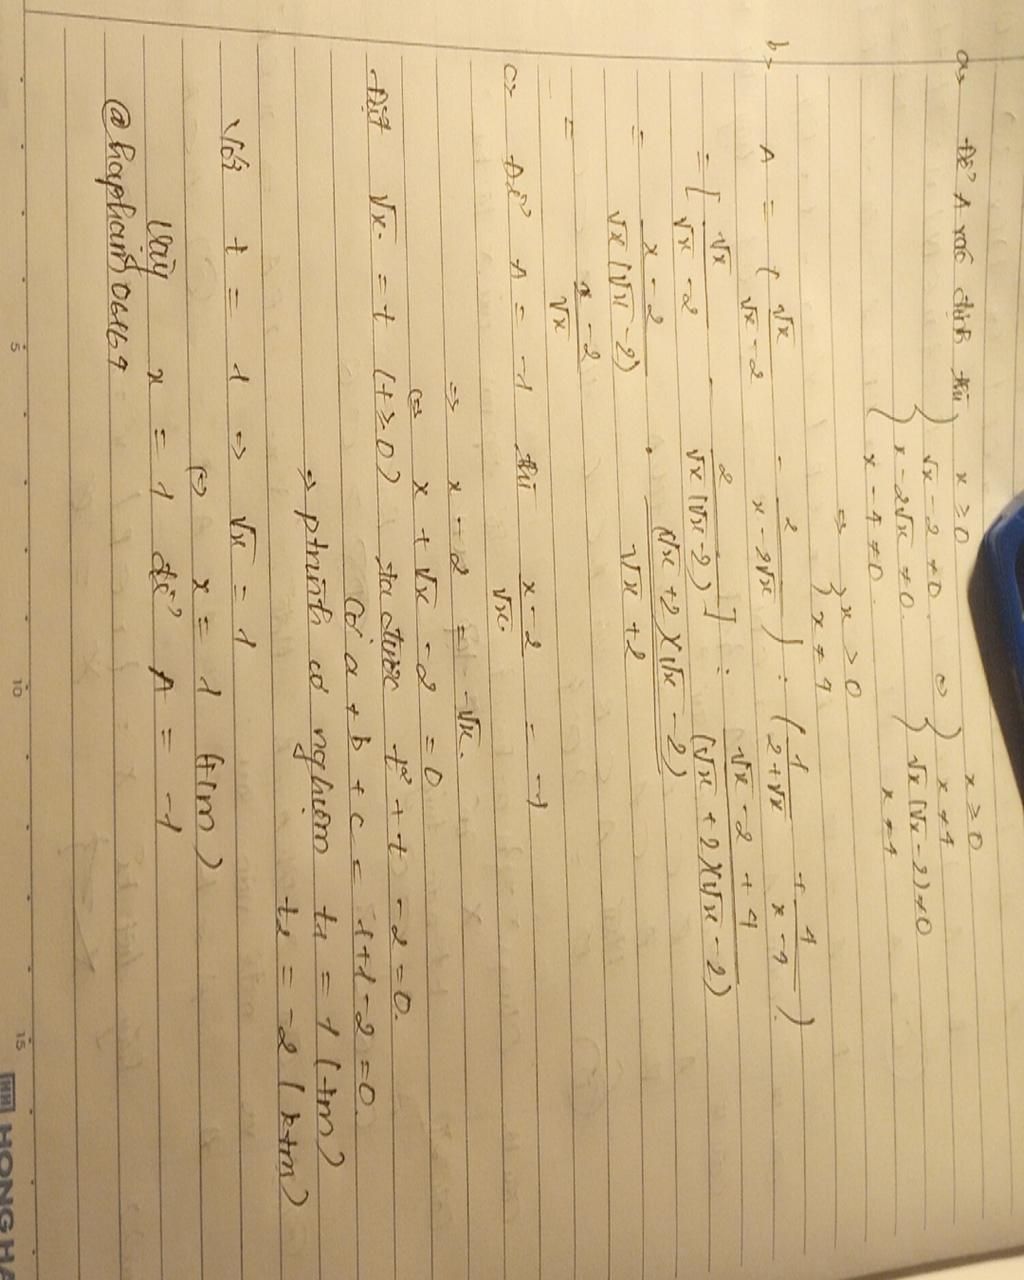 a, Để A xác định thì { x ≥ 0
√x - 2 ≠ 0
x - 2√x ≠ 0
x - 4 ≠ 0
⇔ { x ≥ 0
x ≠ 4
√x (√x - 2) ≠ 0
x ≠ 4
⇒ { x > 0
x ≠ 4
b, A = ( √x / (√x - 2) - 2 / (x - 2√x) ) : ( 1 / (2 + √x) + 4 / (x - 4) ).
= [ √x / (√x - 2) - 2 / (√x (√x - 2)) ] : (√x - 2 + 4) / ((√x + 2)(√x - 2))
= (x - 2) / (√x (√x - 2)) . ((√x + 2)(√x - 2)) / (√x + 2)
= (x - 2) / √x
c, Để A = -1 thì (x - 2) / √x = -1
⇒ x - 2 = -√x.
⇔ x + √x - 2 = 0
Đặt √x = t (t ≥ 0) ta được t² + t - 2 = 0.
Có a + b + c = 1 + 1 - 2 = 0.
⇒ ptrình có nghiệm t₁ = 1 (tm)
t₂ = -2 (ktm)
Với t = 1 ⇒ √x = 1
⇔ x = 1 (tm)
Vậy x = 1 để A = -1
@hapham06169
5 10 15
HH HONG HA